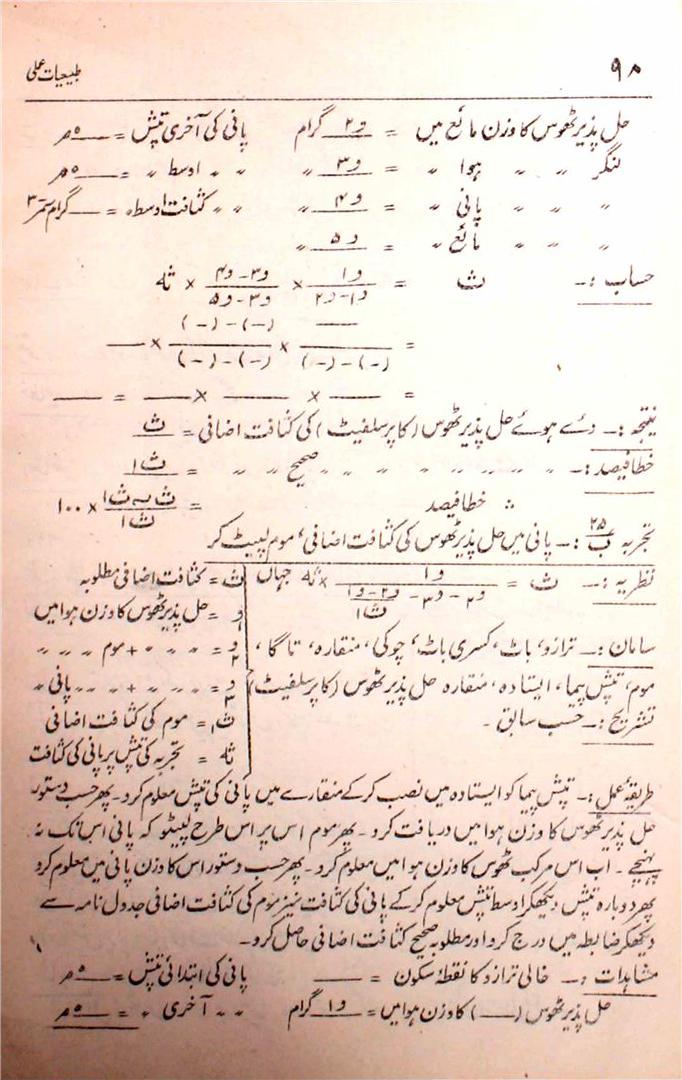 ۹۸ طبیعیات عملی
حل پذیر ٹھوس کا وزن مائع میں = و۲ گرام پانی کی آخری تپش = __ °م
لنگر 〃 〃 ہوا 〃 = و۳ 〃 〃 〃 اوسط 〃 = __ °م
〃 〃 〃 پانی 〃 = و۴ 〃 〃 〃 کثافت اوسط 〃 = __ گرام سمر۳
〃 〃 〃 مائع 〃 = و۵ 〃
حساب :۔ ث = و۱ / و۱-و۲ × و۳-و۴ / و۳-و۵ × ثہ
= __ / (-)-(-) × (-)-(-) / (-)-(-) × __
= __ × __ × __ = __
نتیجہ :۔ دئے ہوئے حل پذیر ٹھوس (کاپر سلفیٹ) کی کثافت اضافی = ث
خطا فیصد :۔ 〃 〃 〃 〃 〃 〃 〃 صحیح 〃 〃 = ث۱
∴ خطا فیصد = ث ~ ث۱ / ث۱ × ۱۰۰
تجربہ ۲۵/ب :۔ پانی میں حل پذیر ٹھوس کی کثافت اضافی، موم لپیٹ کر
نظریہ :۔ ث = و۱ / و۲ - و۳ - و۲-و۱/ث۱ × ثہ جہاں
سامان :۔ ترازو، باٹ، کسری باٹ، چوکی، منقارہ، تاگا،
موم، تپش پیما، ایستادہ، منقارہ حل پذیر ٹھوس (کاپر سلفیٹ)
تشریح :۔ حسب سابق۔
ث = کثافت اضافی مطلوبہ
و۱ = حل پذیر ٹھوس کا وزن ہوا میں
و۲ = 〃 〃 〃 + موم 〃 〃 〃
و۳ = 〃 〃 〃 + 〃 〃 〃 پانی 〃
ث۱ = موم کی کثافت اضافی
ثہ = تجربہ کی تپش پر پانی کی کثافت
طریقۂ عمل :۔ تپش پیما کو ایستادہ میں نصب کر کے منقارے میں پانی کی تپش معلوم کرو۔ پھر حسب دستور
حل پذیر ٹھوس کا وزن ہوا میں دریافت کرو۔ پھر موم اس پر اس طرح لپیٹو کہ پانی اس تک نہ
پہنچے۔ اب اس مرکب ٹھوس کا وزن ہوا میں معلوم کرو۔ پھر حسب دستور اس کا وزن پانی میں معلوم کرو
پھر دوبارہ تپش دیکھکر اوسط تپش معلوم کر کے پانی کی کثافت نیز موم کی کثافت اضافی جدول نامہ سے
دیکھکر ضابطہ میں درج کرو اور مطلوبہ صحیح کثافت اضافی حاصل کرو۔
مشاہدات :۔ خالی ترازو کا نقطۂ سکون = __ پانی کی ابتدائی تپش = __ °م
حل پذیر ٹھوس (__) کا وزن ہوا میں = و۱ گرام 〃 〃 آخری 〃 = __ °م